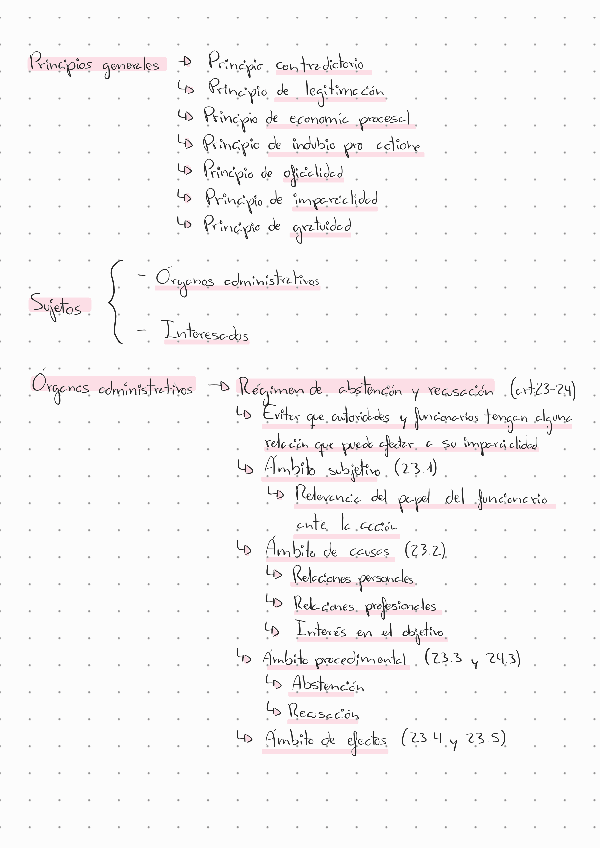 Principios generales → Principio contradictorio
↳ Principio de legitimación
↳ Principio de economía procesal
↳ Principio de indubio pro actione
↳ Principio de oficialidad
↳ Principio de imparcialidad
↳ Principio de gratuidad
Sujetos { - Órganos administrativos
- Interesados
Órganos administrativos → Régimen de abstención y recusación (art.23-24)
↳ Evitar que autoridades y funcionarios tengan alguna
relación que puede afectar a su imparcialidad
↳ Ámbito subjetivo (23.1)
↳ Relevancia del papel del funcionario
ante la acción
↳ Ámbito de causas (23.2)
↳ Relaciones personales
↳ Relaciones profesionales
↳ Interés en el objetivo
↳ Ámbito procedimental (23.3 y 24.3)
↳ Abstención
↳ Recusación
↳ Ámbito de efectos (23.4 y 23.5)